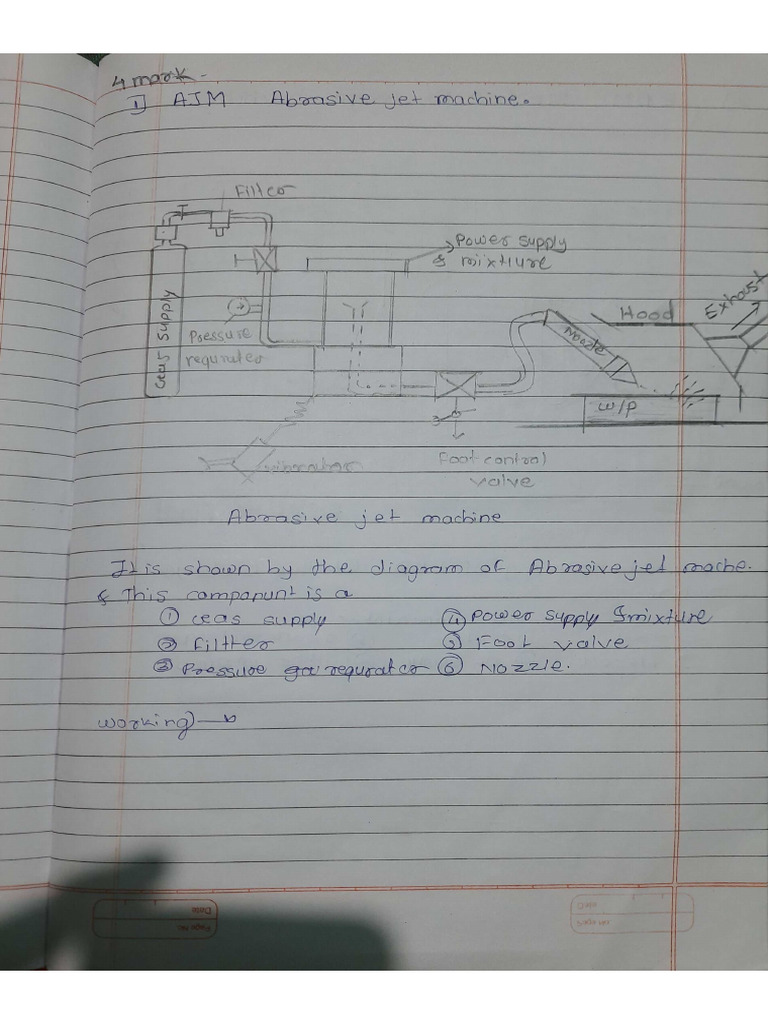 4 mark -
1] AJM Abrasive jet machine.
Filter
Power supply
& mixture
Gas supply
Pressure
requrater
Nozzle
Hood
Exhaust
W/P
vibrator
Foot control
valve
Abrasive jet machine
It is shown by the diagram of Abrasive jet mache.
& This compopunt is a
① Geas supply ④ Power supply & mixture
② Filtter ⑤ Foot valve
③ Pressure ga requrater ⑥ Nozzle.
working) →
Date
Page No:
Date